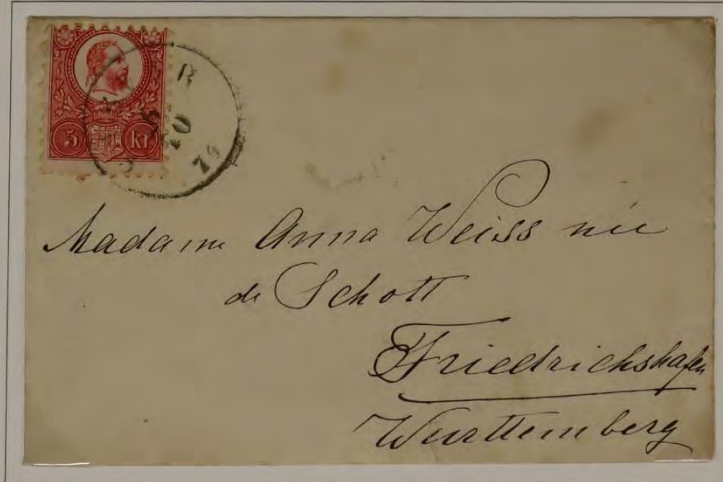 5 kr
10
74
Madame Anna Weiss née
de Schott
Friedrichshafen
Württemberg